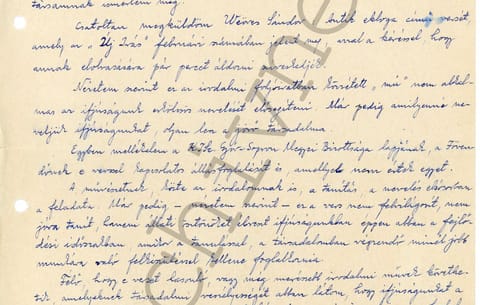 társamnak ismertem meg.
Csatoltan megküldöm Weöres Sándor " Antik ekloga című versét,
amely az " Uj Irás" februári számában jelent meg, azzal a kéréssel, hogy
annak elolvasására pár percet áldozni sziveskedjék.
Nézetem szerint ez az irodalmi folyóiratban közzétett " mű" nem alkal-
mas az ifjúságunk erkölcsi nevelését elősegíteni. Már pedig amilyenné ne-
veljük ifjúságunkat, olyan lesz a jövő társadalma.
Egyben mellékelem a KISz. Győr-Sopron Megyei Bizottsága lapjának, a Töven-
dőnek e verssel kapcsolatos állásfoglalását is, amellyel nem értek egyet.
A művészetnek, köztük az irodalomnak is, a tanítás, a nevelés elsősorban
a feladata. Már pedig - nézetem szerint - ez a vers nem felvilágosít, nem
jóra tanít, hanem állati ösztönöket ifjúságunkban éppen abban a fejlő-
dési időszakban, amikor a tanulással, a társadalomban végzendő minél jobb
munkára való felkészüléssel kellene foglalkoznia.
Félő, hogy e vezet hasonló vagy még merészebb irodalmi művek követhe-
tik, amelyeknek társadalmi veszélyességét abban látom, hogy ifjúságunkat a
archivne